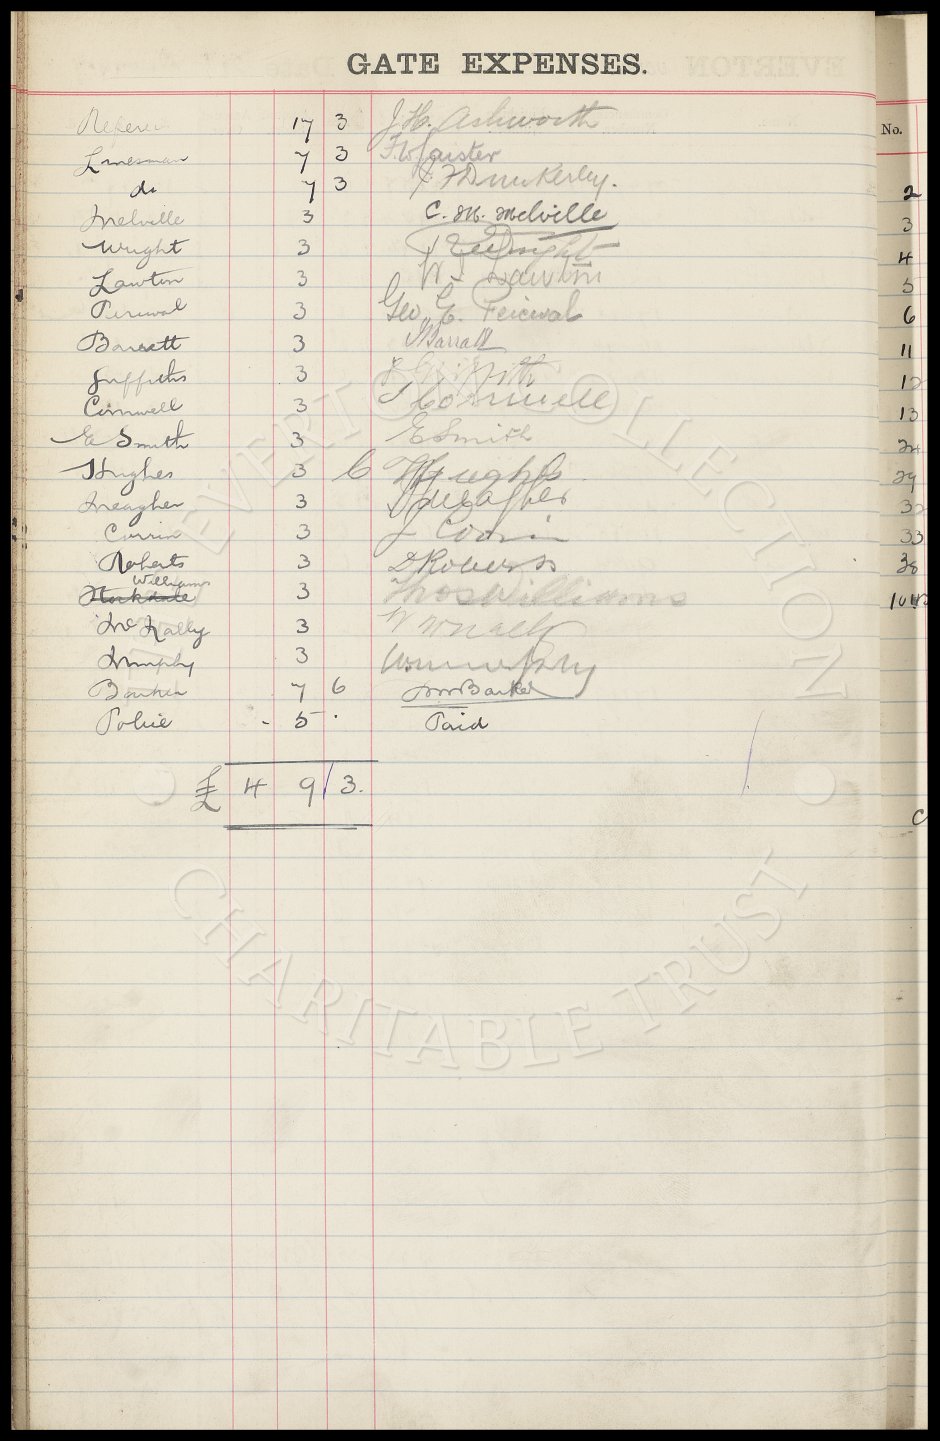 GATE EXPENSES.
Referee 17 3 J. H. Ashworth
Linesman 7 3
do 7 3
Melville 3 C. M. Melville
Wright 3
Lawton 3 W Lawton
Percival 3 Geo. E. Percival
Barratt 3 Barratt
Griffiths 3
Cornwell 3 Cornwell
E Smith 3 E Smith
Hughes 3 Hughes
Meagher 3 Meagher
Corrin 3 J Corrin
Roberts 3 D Roberts
Williams
Stockdale 3 Thos Williams
McNally 3 W McNally
Murphy 3
Barker 7 6 Barker
Police - 5 . Paid
£ 4 9 3.
No.
2
3
4
5
6
11
12
13
24
29
32
33
38
EVERTON COLLECTION
CHARITABLE TRUST